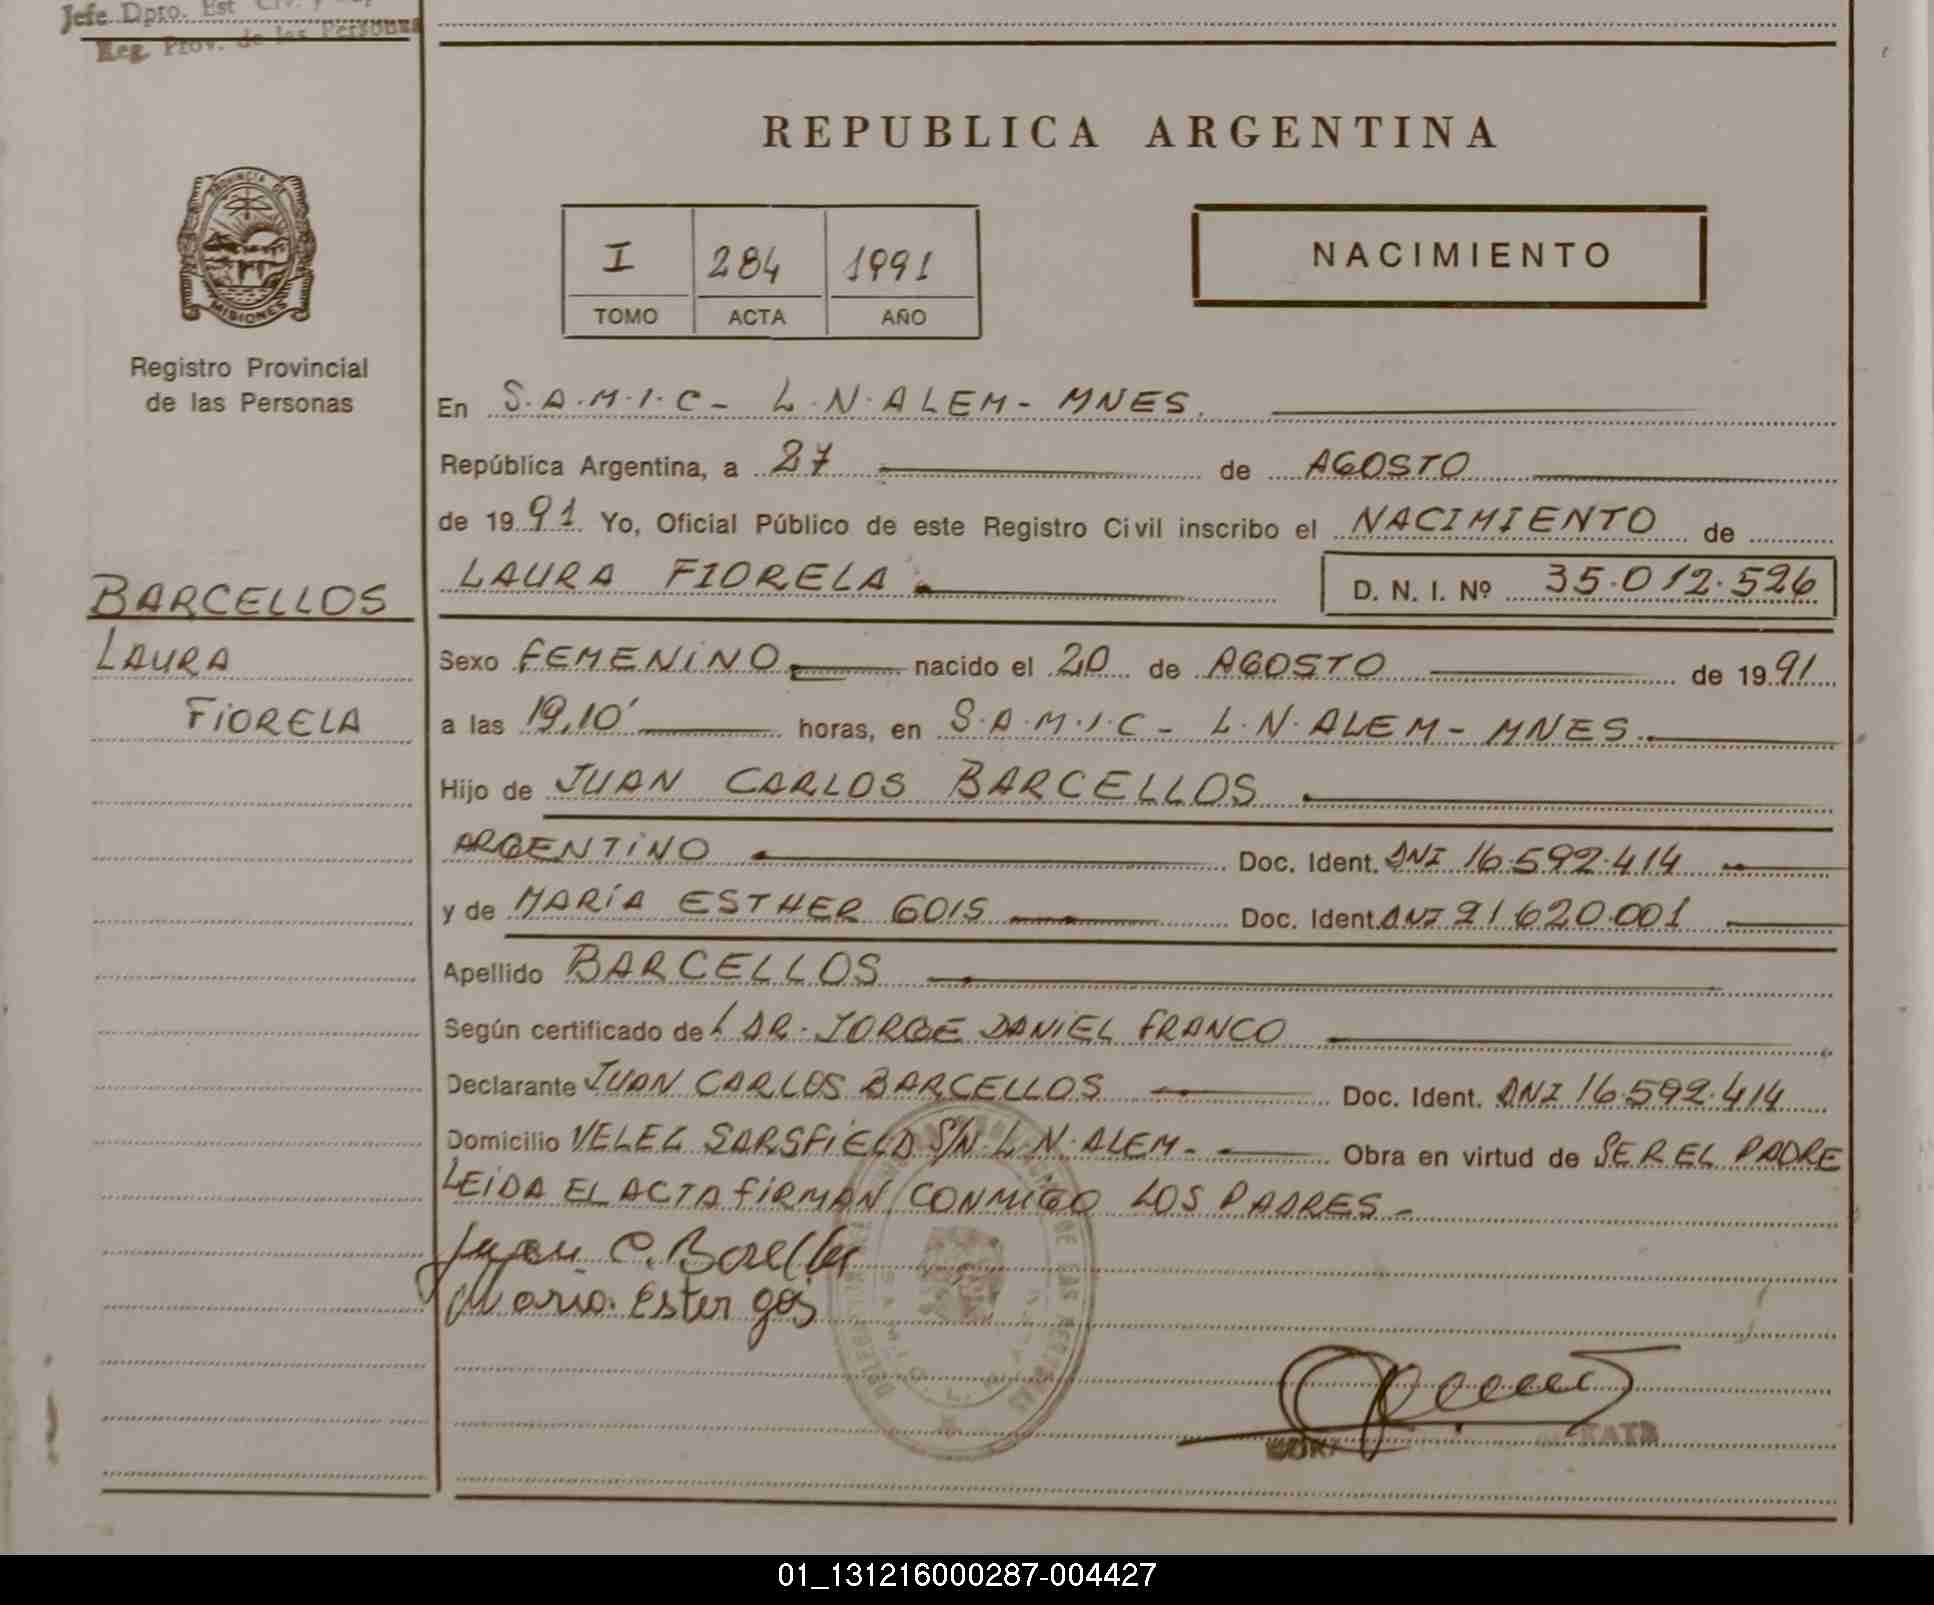 Jefe Dpto. Est. Civ. y
Reg. Prov. de las Personas
REPUBLICA ARGENTINA
PROVINCIA DE
MISIONES
Registro Provincial
de las Personas
I 284 1991
TOMO ACTA AÑO
NACIMIENTO
BARCELLOS
LAURA
FIORELA
En S.A.M.I.C - L.N.ALEM - MNES.
República Argentina, a 27 de AGOSTO
de 1991 Yo, Oficial Público de este Registro Civil inscribo el NACIMIENTO de
LAURA FIORELA D. N. I. Nº 35.012.526
Sexo FEMENINO nacido el 20 de AGOSTO de 1991
a las 19,10' horas, en S.A.M.I.C - L.N.ALEM - MNES.
Hijo de JUAN CARLOS BARCELLOS
ARGENTINO Doc. Ident. DNI 16.592.414
y de MARÍA ESTHER GOIS Doc. Ident. DNI 21.620.001
Apellido BARCELLOS
Según certificado de DR. JORGE DANIEL FRANCO
Declarante JUAN CARLOS BARCELLOS Doc. Ident. DNI 16.592.414
Domicilio VELEZ SARSFIELD S/N. L.N.ALEM - Obra en virtud de SER EL PADRE
LEIDA EL ACTA FIRMAN CONMIGO LOS PADRES -
Juan C.
Maria Ester
01_131216000287-004427